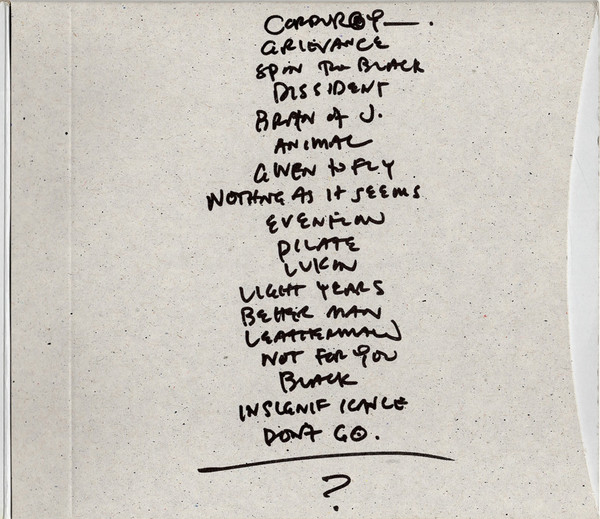 CORDUROY —.
GRIEVANCE
SPIN THE BLACK
DISSIDENT
BRAIN of J.
ANIMAL
GIVEN to FLY
NOTHING AS It SEEMS
EVENFLOW
PILATE
LUKIN
LIGHT YEARS
BETTER MAN
LEATHERMAN
NOT FOR YOU
BLACK
INSIGNIFICANCE
DON'T GO.
?